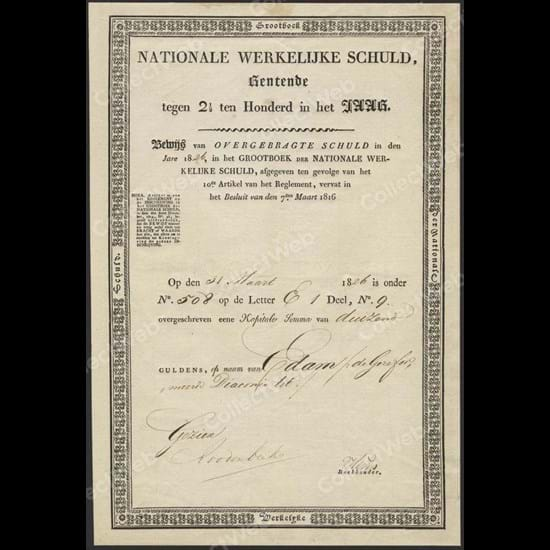 Grootboek
NATIONALE WERKELIJKE SCHULD,
Rentende
tegen 2½ ten Honderd in het JAAR.
Bewijs van OVERGEBRAGTE SCHULD in den
Jare 1826, in het GROOTBOEK DER NATIONALE WER-
KELIJKE SCHULD, afgegeven ten gevolge van het
10de Artikel van het Reglement, vervat in
het Besluit van den 7den Maart 1816
Schuld.
der Nationale
Op den 31 Maart 1826 is onder
No. 508 op de Letter E 1 Deel, No. 9.
overgeschreven eene Kapitale Somma van duizend
GULDENS, op naam van Edam, de Gerefor
meerde Diaconie te
Gezien
Boekhouder.
Werkelyke
CollectWeb